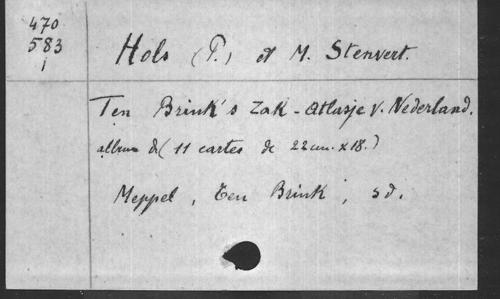 470
583
1
Hols (P.) et M. Stenvert.
Ten Brink's Zak-Atlasje v. Nederland.
album de (11 cartes de 22 cm. x 18.)
Meppel, Ten Brink, s d.